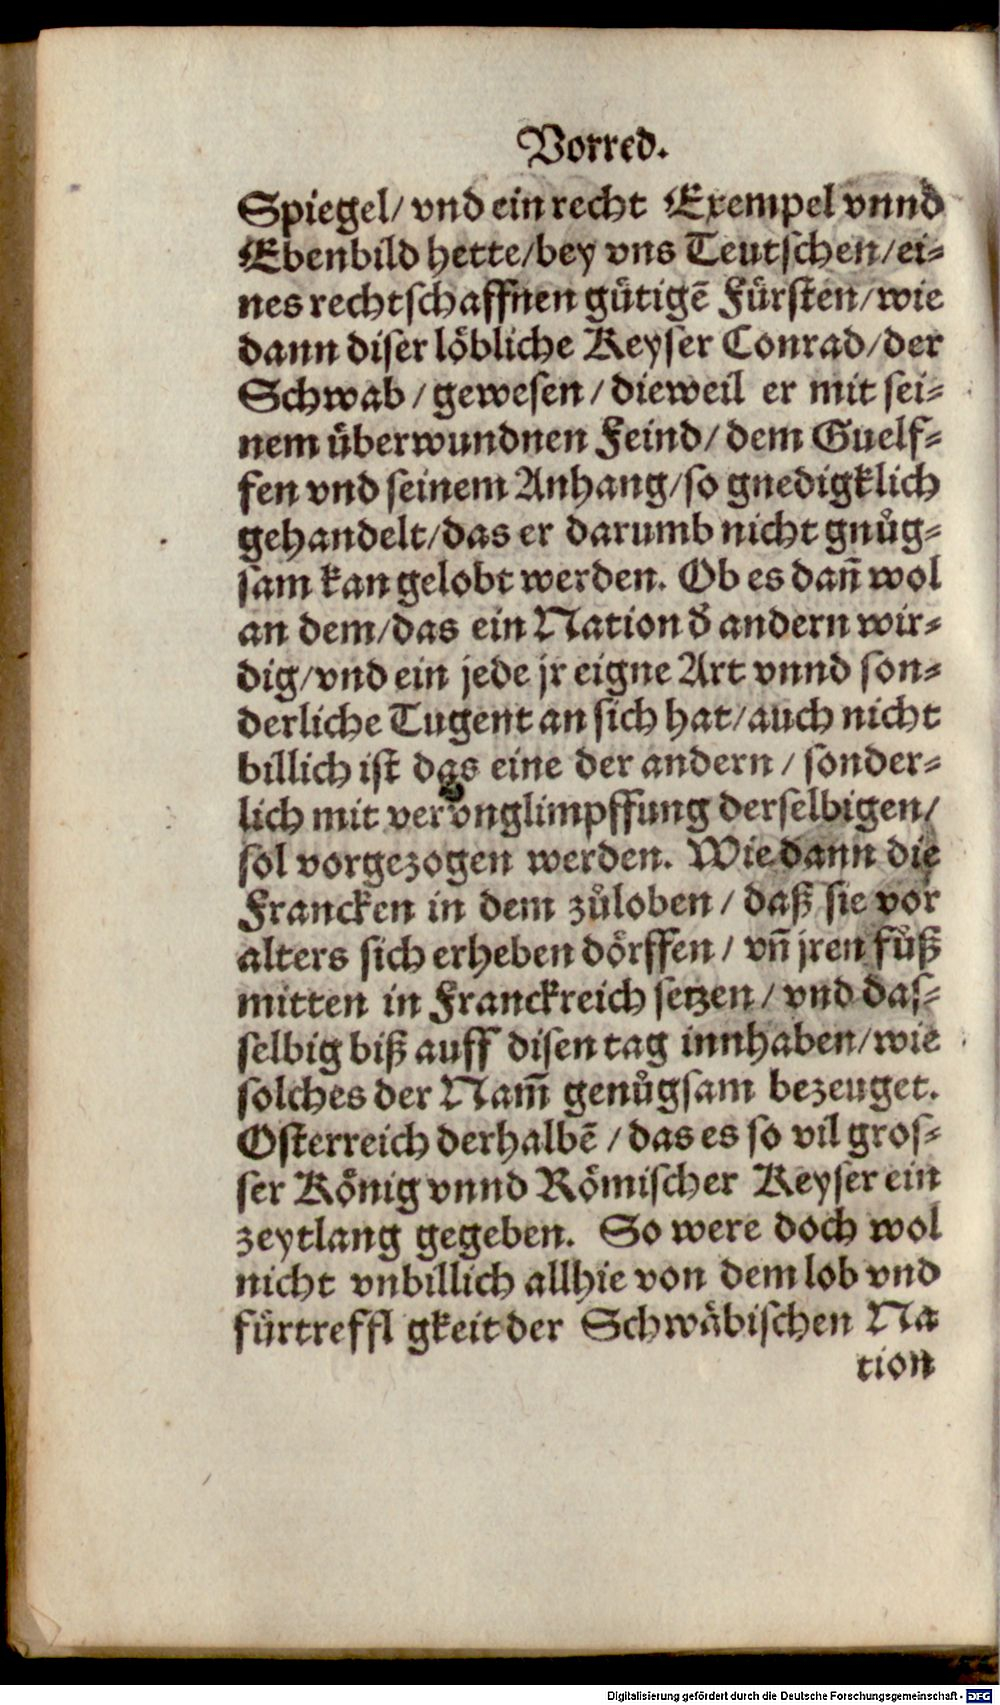 Vorred.
Spiegel/ vnd ein recht Exempel vnnd
Ebenbild hette/bey vns Teutschen/ei-
nes rechtschaffnen gütigẽ Fürsten/wie
dann diser löbliche Keyser Conrad/der
Schwab/gewesen/dieweil er mit sei-
nem überwundnen Feind/dem Guelf-
fen vnd seinem Anhang/so gnedigklich
gehandelt/das er darumb nicht gnůg-
sam kan gelobt werden. Ob es dañ wol
an dem/das ein Nation đ andern wir-
dig/vnd ein jede jr eigne Art vnnd son-
derliche Tugent an sich hat/auch nicht
billich ist das eine der andern/ sonder-
lich mit vervnglimpffung derselbigen/
sol vorgezogen werden. Wie dann die
Francken in dem zůloben/ daß sie vor
alters sich erheben dörffen/ vñ jren fůß
mitten in Franckreich setzen/ vnd das-
selbig biß auff disen tag innhaben/wie
solches der Nam̃ genůgsam bezeuget.
Osterreich derhalbẽ/das es so vil gros-
ser König vnnd Römischer Keyser ein
zeytlang gegeben. So were doch wol
nicht vnbillich allhie von dem lob vnd
fürtreffl gkeit der Schwäbischen Na
tion
Digitalisierung gefördert durch die Deutsche Forschungsgemeinschaft - DFG